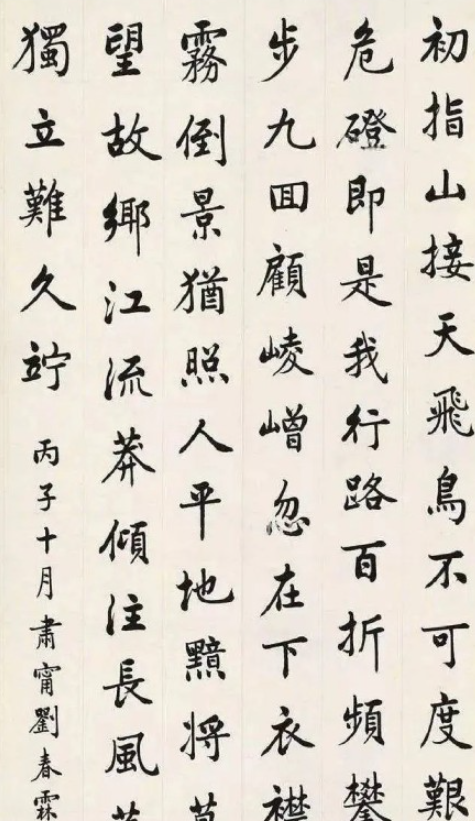 初指山接天飛鳥不可度艱
危磴即是我行路百折頻攀
步九囘顧崚嶒忽在下衣襟
霧倒景猶照人平地黯將
望故鄉江流莽傾注長風
獨立難久竚
丙子十月肅甯劉春霖